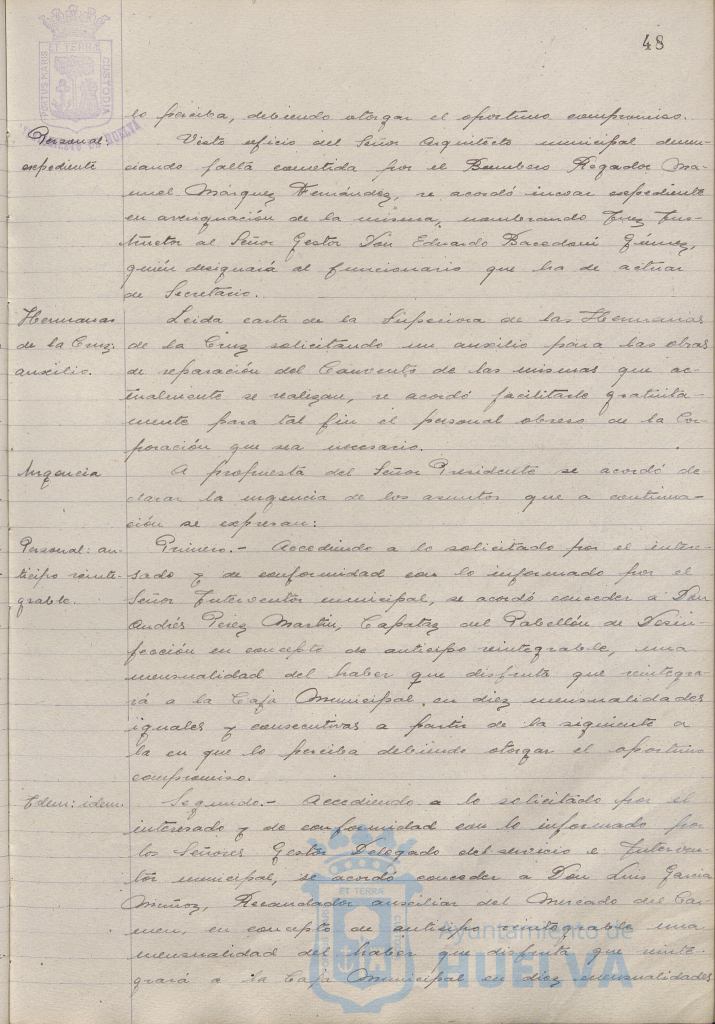 48
PORTUS MARIS
ET TERRÆ
CUSTODIA
HUELVA
lo perciba, debiendo otorgar el oportuno compromiso.
Personal
expediente
Visto oficio del Señor Arquitecto municipal denun-
ciando falta cometida por el Bombero Regador Ma-
nuel Márquez Fernández, se acordó incoar expediente
en averiguación de la misma, nombrando Juez Ins-
tructor al Señor Gestor Don Eduardo
quién designará al funcionario que ha de actuar
de Secretario.
Hermanas
de la Cruz:
auxilio.
Leida carta de la Superiora de las Hermanas
de la Cruz solicitando un auxilio para las obras
de reparación del Convento de las mismas que ac-
tualmente se realizan, se acordó facilitarle gratuita-
mente para tal fin el personal obrero de la Cor-
poración que sea necesario.
Urgencia
A propuesta del Señor Presidente se acordó de-
clarar la urgencia de los asuntos que a continua-
ción se expresan:
Personal: an-
ticipo reinte-
grable.
Primero.- Accediendo a lo solicitado por el intere-
sado y de conformidad con lo informado por el
Señor Interventor municipal, se acordó conceder a Don
Andrés Perez Martin, Capataz del Pabellón de Desin-
fección en concepto de anticipo reintegrable, una
mensualidad del haber que disfruta que reintegra-
rá a la Caja Municipal en diez mensualidades
iguales y consecutivas a partir de la siguiente a
la en que lo perciba debiendo otorgar el oportuno
compromiso.
Idem: idem.
Segundo.- Accediendo a lo solicitado por el
interesado y de conformidad con lo informado por
los Señores Gestor Delegado del servicio e Interven-
tor municipal, se acordó conceder a Don Luis Garcia
Muñoz, Recaudador auxiliar del Mercado del Car-
men, en concepto de anticipo reintegrable una
mensualidad del haber que disfruta que reinte-
grará a la Caja Municipal en diez mensualidades
Ayuntamiento de
HUELVA